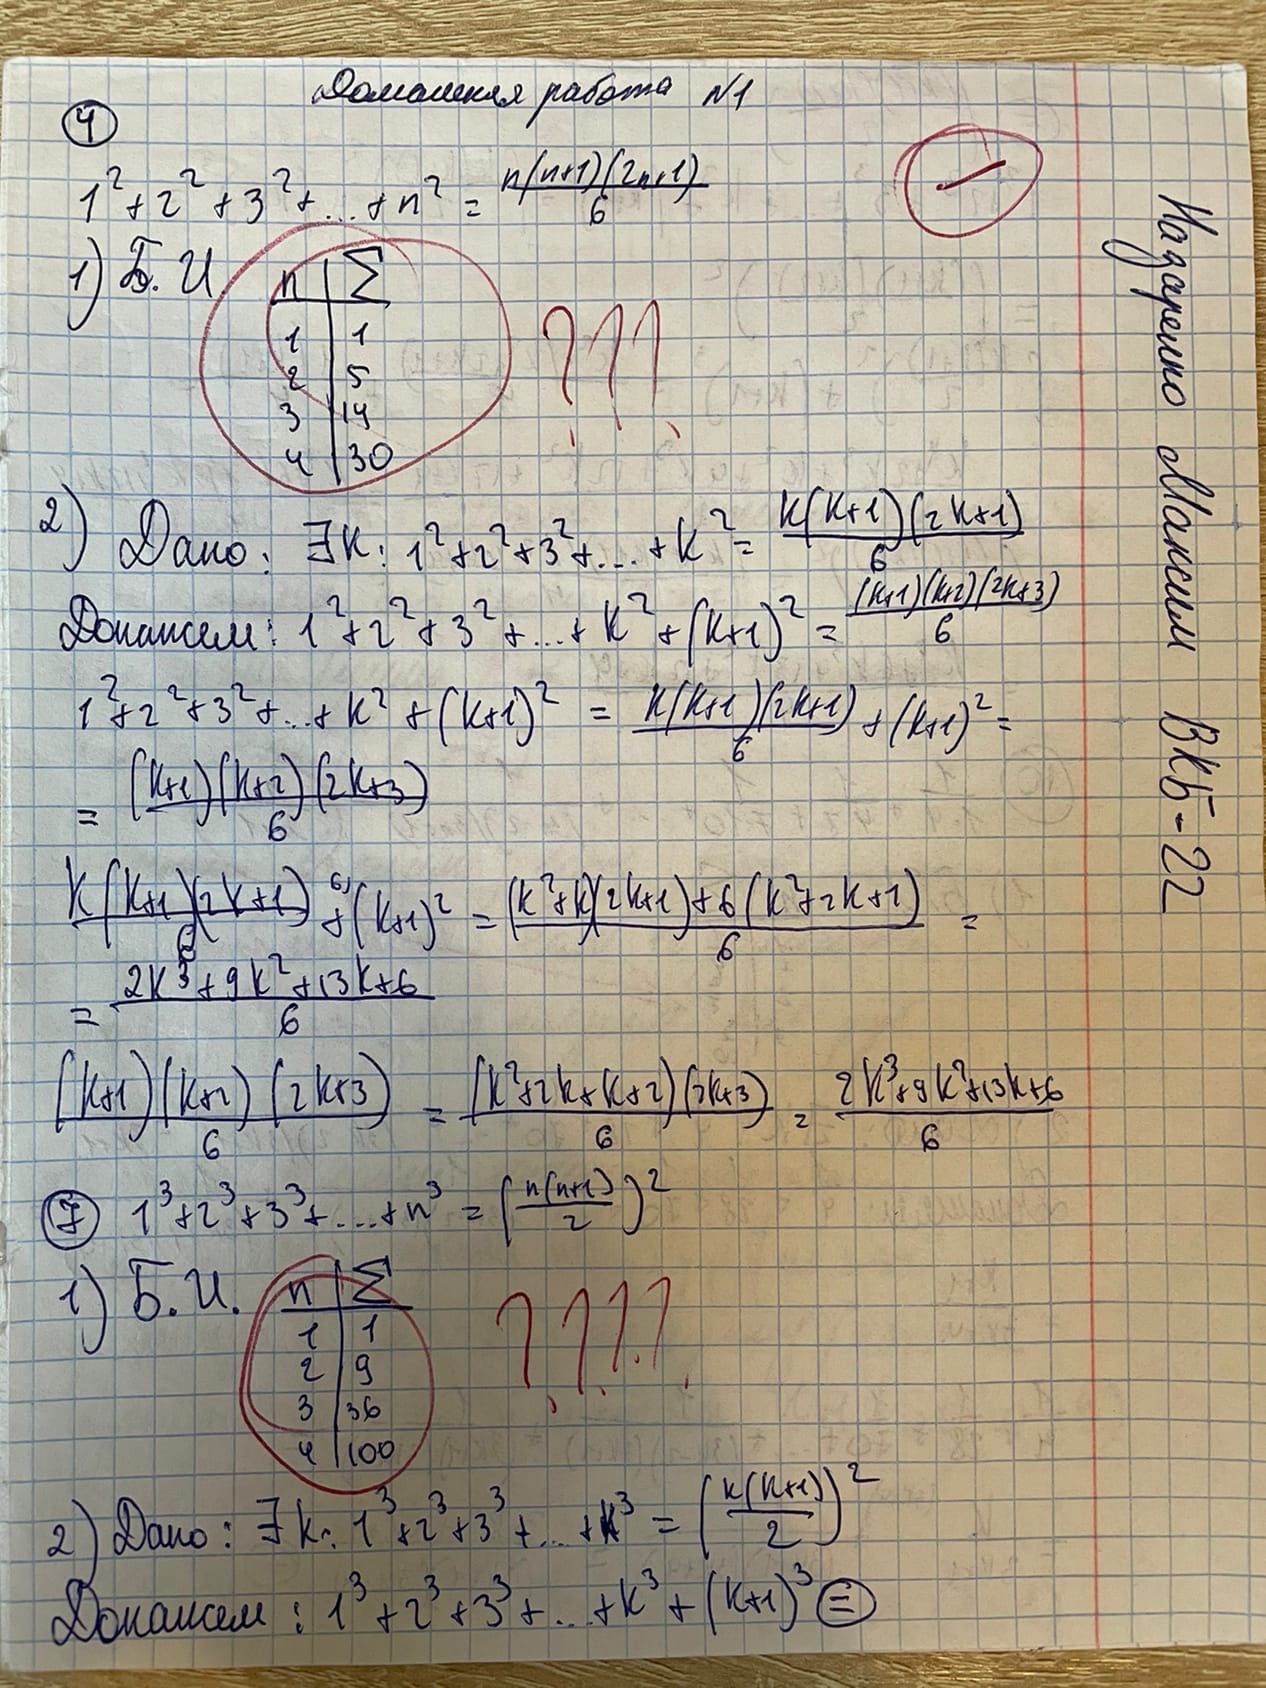 Домашняя работа №1
④
1² + 2² + 3² + ... + n² = n(n+1)(2n+1)/6
1) Б.И.
n | Σ
1 | 1
2 | 5
3 | 14
4 | 30
???
2) Дано: ∃k: 1² + 2² + 3² + ... + k² = k(k+1)(2k+1)/6
Докажем: 1² + 2² + 3² + ... + k² + (k+1)² = (k+1)(k+2)(2k+3)/6
1² + 2² + 3² + ... + k² + (k+1)² = k(k+1)(2k+1)/6 + (k+1)² =
= (k+1)(k+2)(2k+3)/6
k(k+1)(2k+1)/6 + ⁶⁾(k+1)² = (k²+k)(2k+1)+6(k²+2k+1)/6 =
= 2k³+9k²+13k+6/6
(k+1)(k+2)(2k+3)/6 = (k²+2k+k+2)(2k+3)/6 = 2k³+9k²+13k+6/6
⑦ 1³ + 2³ + 3³ + ... + n³ = (n(n+1)/2)²
1) Б.И.
n | Σ
1 | 1
2 | 9
3 | 36
4 | 100
????
2) Дано: ∃k: 1³ + 2³ + 3³ + ... + k³ = (k(k+1)/2)²
Докажем: 1³ + 2³ + 3³ + ... + k³ + (k+1)³ ⊜
Назаренко Максим ВКБ-22